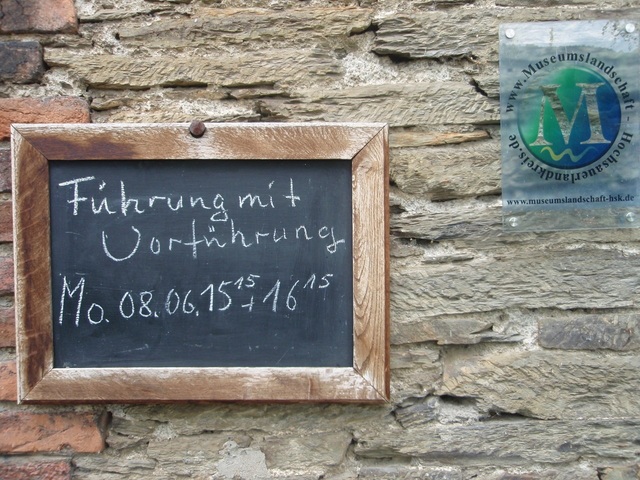 Führung mit
Vorführung
Mo. 08.06. 15¹⁵ + 16¹⁵
www.Museumslandschaft-Hochsauerlandkreis.de
M
www.museumslandschaft-hsk.de